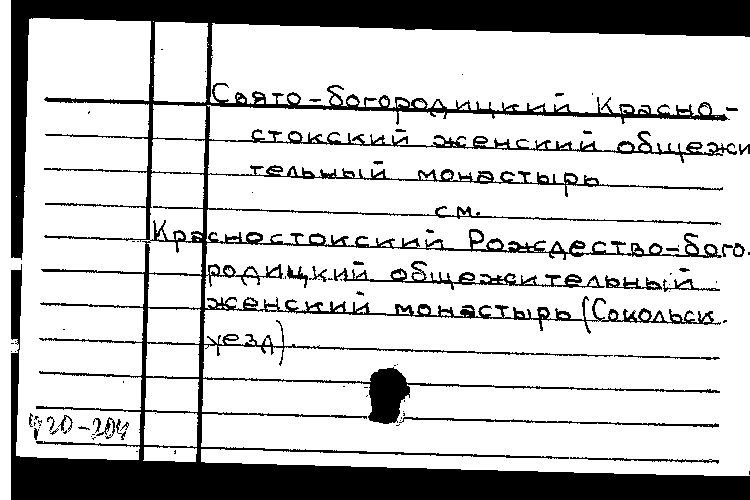 Свято-богородицкий Красно-
стокский женский общежи
тельный монастырь
см.
Красностокский Рождество-бого-
родицкий общежительный
женский монастырь (Сокольск.
уезд).
920-204